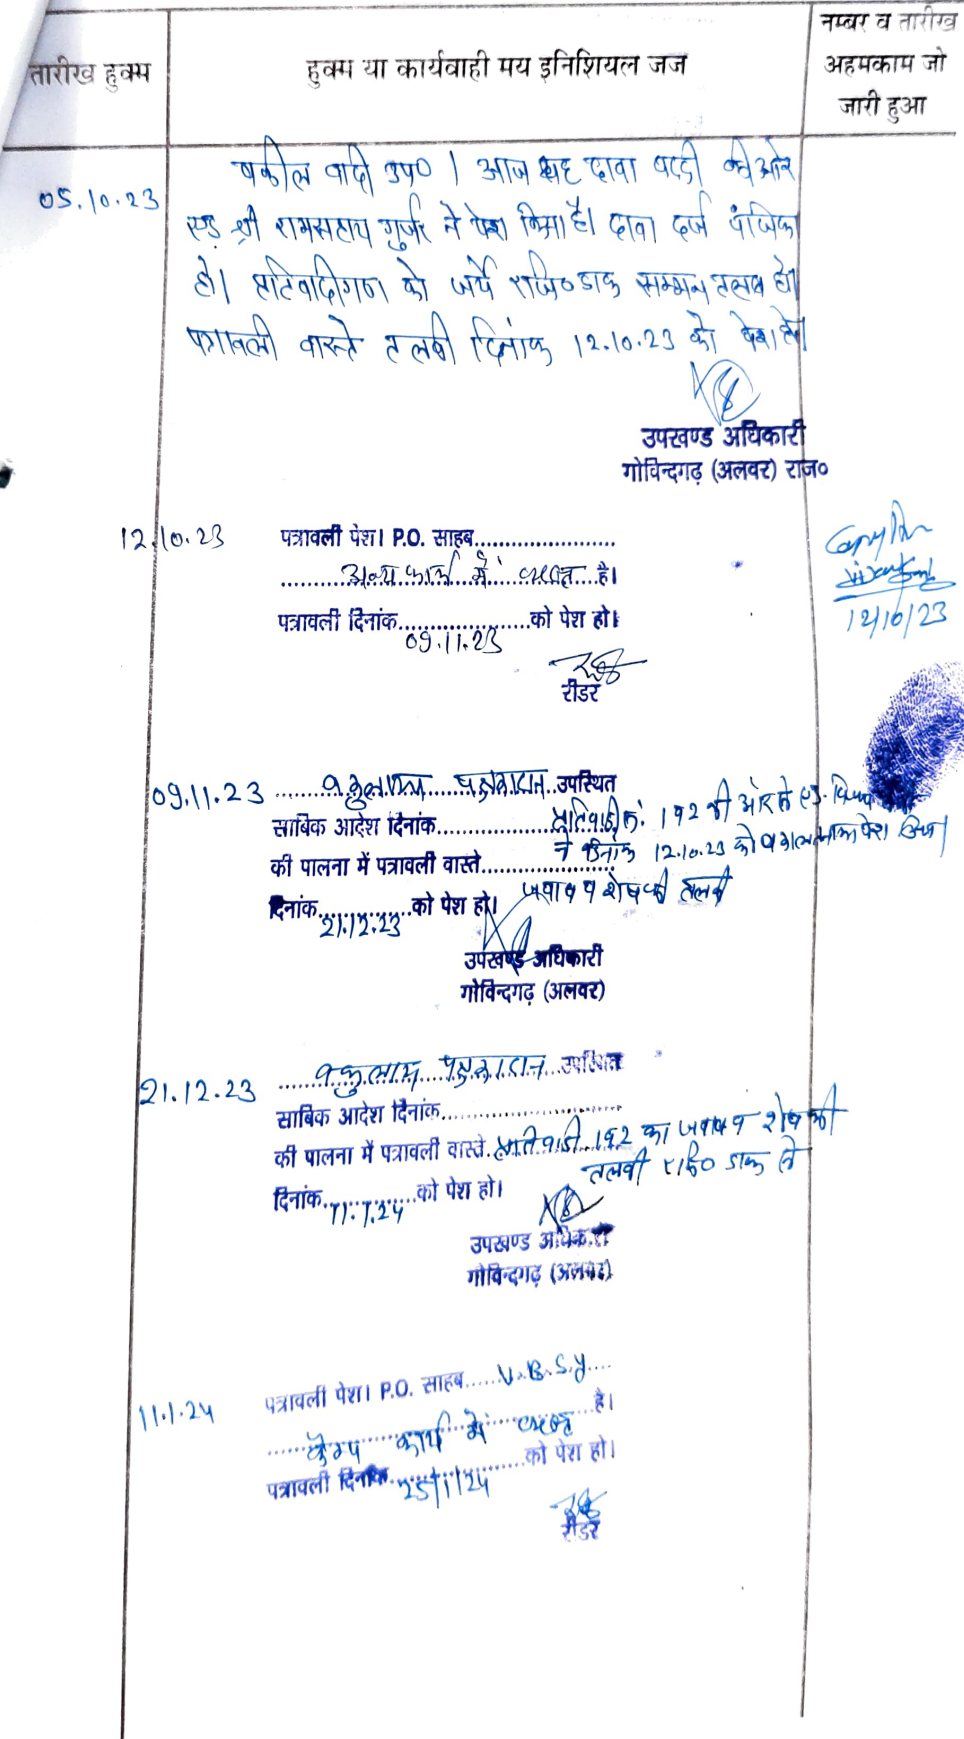 तारीख हुक्म
हुक्म या कार्यवाही मय इनिशियल जज
नम्बर व तारीख
अहमकाम जो
जारी हुआ
05.10.23
वकील वादी उप० । आज यह दावा वादी की ओर
एड श्री रामसहाय गुर्जर ने पेश किया है। दावा दर्ज पंजिका
हो। प्रतिवादीगण को जर्ये रजि० डाक सम्मन तलब हो।
पत्रावली वास्ते तलबी दिनांक 12.10.23 को पेश हो।
उपखण्ड अधिकारी
गोविन्दगढ़ (अलवर) राज०
12.10.23
पत्रावली पेश। P.O. साहब......................
अन्य कार्य में व्यस्त है।
पत्रावली दिनांक 09.11.23 को पेश हो।
रीडर
12/10/23
09.11.23
वकुलाय पक्षकारान उपस्थित
साबिक आदेश दिनांक.................... प्रतिवादी नं. 1 व 2 की ओर से एड.
ने दिनांक 12.10.23 को वकालतनामा पेश किया
की पालना में पत्रावली वास्ते.......................
जवाब व शेष की तलबी
दिनांक 21.12.23 को पेश हो।
उपखण्ड अधिकारी
गोविन्दगढ़ (अलवर)
21.12.23
वकुलाय पक्षकारान उपस्थित
साबिक आदेश दिनांक...............................
की पालना में पत्रावली वास्ते प्रतिवादी 1 व 2 का जवाब व शेष की
तलबी रजि० डाक से
दिनांक 11.1.24 को पेश हो।
उपखण्ड अधिकारी
गोविन्दगढ़ (अलवर)
11.1.24
पत्रावली पेश। P.O. साहब V.B.S.y
कैम्प कार्य में व्यस्त है।
पत्रावली दिनांक 25/1/24 को पेश हो।
रीडर